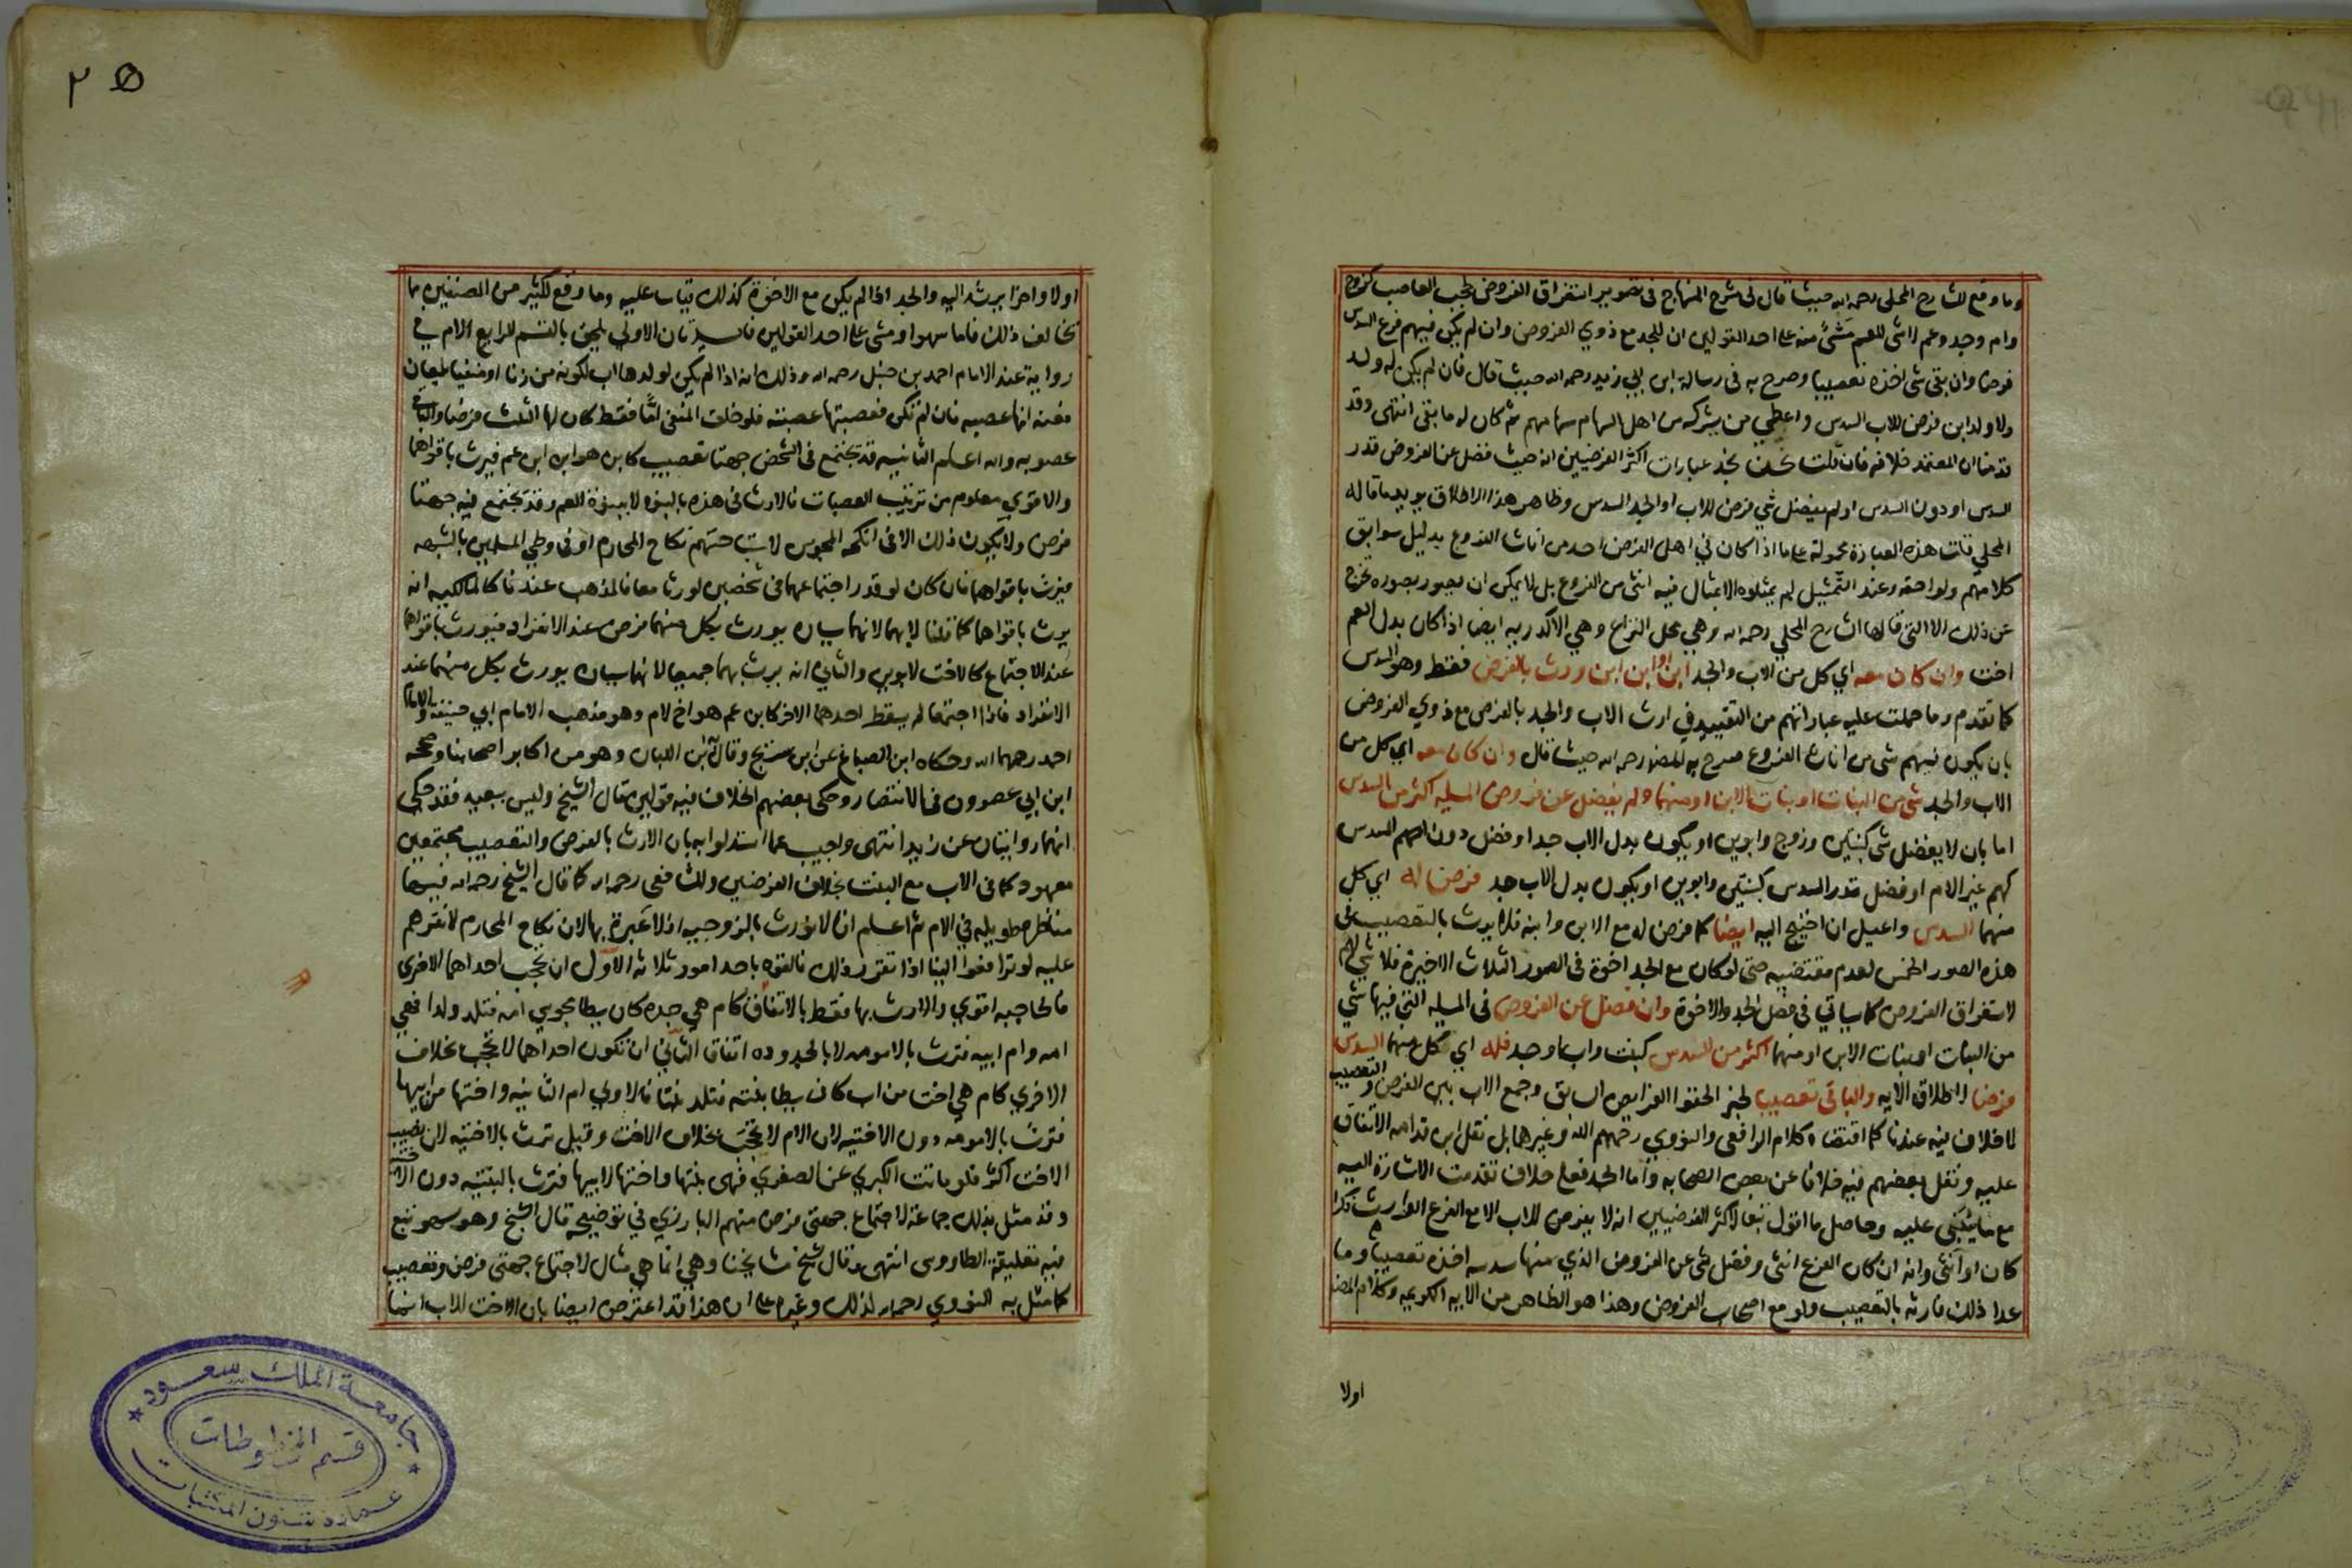 وما وقع للشارح المحلي رحمه الله حيث قال في شرح المنهاج في تصوير استغراق الفروض لحجب العاصب كزوج
وام وجد وعم لا شى للعم مشئ منه على احد القولين ان للجد مع ذوي الفروض وان لم يكن فيهم فرع السدس
فرضا وان بقى شى اخذه تعصيبا وصرح به فى رسالة ابن ابي زيد رحمه الله حيث قال فان لم يكن له ولد
ولا ولد ابن فرض للاب السدس واعطي من يشركه من اهل السهام سهامهم ثم كان له ما بقى انتهى وقد
قدمنا ان المعتمد خلافه فان قلت نحن نجد عبارات اكثر الفرضيين انه حيث فضل عن الفروض قدر
السدس او دون السدس او لم يفضل شي فرض للاب او الجد السدس وظاهر هذا الاطلاق يويد ما قاله
المحلي قلت هذه العبارة محمولة على ما اذا كان في اهل الفرض احد من اناث الفروع بدليل سوابق
كلامهم ولواحقه وعند التمثيل لم يمثلوه الا بمثال فيه انثى من الفروع بل لا يمكن ان يصور بصوره تخرج
عن ذلك الا التي قالها الشارح المحلي رحمه الله وهي محل النزاع وهي الاكدريه ايضا اذا كان بدل العم
اخت وان كان معه اي كل من الاب والجد ابن او ابن ابن ورث بالفرض فقط وهو السدس
كما تقدم وما حملت عليه عباراتهم من التقييد في ارث الاب والجد بالفرض مع ذوي الفروض
بان يكون فيهم شى من اناث الفروع صرح به المصنف رحمه الله حيث قال وان كان معه اي كل من
الاب والجد شى من البنات او بنات الابن او منهما ولم يفضل عن فروض المسيله اكثر من السدس
اما بان لا يفضل شى كبنتين وزوج وابوين او يكون بدل الاب جدا او فضل دون السدس
كهم غير الام او فضل قدر السدس كبنتين وابوين او يكون بدل الاب جد فرض له اي كل
منهما السدس واعيل ان احتيج اليه ايضا كما فرض له مع الابن وابنه فلا يرث بالتعصيب في
هذه الصور الخمس لعدم مقتضيه حتى لو كان مع الجد اخوة فى الصور الثلاث الاخيرة فلا شي لهم
لاستغراق الفروض كما سياتي فى فصل الجد والاخوة وان فضل عن الفروض فى المسيله التي فيها شي
من البنات او بنات الابن او منهما اكثر من السدس كبنت واب او جد فله اي كل منهما السدس
فرضا لاطلاق الايه والباقى تعصيبا لخبر الحقوا الفرايض السابق وجمع الاب بين الفرض والتعصيب
لا خلاف فيه عندنا كما اقتضاه كلام الرافعى والنووي رحمهم الله وغيرهما بل نقل ابن قدامه الاتفاق
عليه ونقل بعضهم فيه خلافا عن بعض الصحابه واما الجد فعلى خلاف تقدمت الاشارة اليه
مع ما ينبنى عليه وحاصل ما اقول تبعا لاكثر الفرضيين انه لا يفرض للاب الا مع الفرع الوارث ذكرا
كان او انثى وانه ان كان الفرع انثى وفضل شى عن الفروض الذي منها سدسه اخذه تعصيبا وما
عدا ذلك فارثه بالتعصيب ولو مع اصحاب الفروض وهذا هو الظاهر من الايه الكريمه وكلام المصنف
اولا
٢٥
اولا واخرا يرشد اليه والجد اذا لم يكن مع الاخوة كذلك قياسا عليه وما وقع لكثير من المصنفين مما
يخالف ذلك فاما سهوا او مشى على احد القولين فايدتان الاولي يلحق بالقسم الرابع الام في
رواية عند الامام احمد بن حنبل رحمه الله وذلك انه اذا لم يكن لولدها اب لكونه من زنا او منفيا بلعان
فعنه انها عصبه فان لم تكن فعصبتها عصبته فلو خلف المنفى امًّا فقط كان لها الثلث فرضا والباقي
عصوبه والله اعلم الثانيه قد تجتمع فى الشخص جهتا تعصيب كابن هو ابن ابن عم فيرث باقواهما
والاقوي معلوم من ترتيب العصبات فالارث فى هذه بالبنوة لا ببنوة العم وقد تجتمع فيه جهتا
فرض ولا يكون ذلك الا فى انكحة المجوس لاستباحتهم نكاح المحارم او فى وطي المسلمين بالشبهه
فيرث باقواهما فان كان لو قدر اجتماعهما فى شخصين لورثا معا فالمذهب عندنا كالمالكيه انه
يرث باقواهما كما قلنا لا بهما لانهما سببان يورث بكل منهما فرض عند الانفراد فيورث باقواهما
عند الاجتماع كالاخت لابوين والثاني انه يرث بهما جميعا لانهما سببان يورث بكل منهما عند
الانفراد فاذا اجتمعا لم يسقط احدهما الاخر كابن عم هو اخ لام وهو مذهب الامام ابي حنيفة والامام
احمد رحمهما الله وحكاه ابن الصباغ عن ابن سريج وقال به ابن اللبان وهو من اكابر اصحابنا وصححه
ابن ابي عصرون فى الانتصار وحكى بعضهم الخلاف فيه قولين قال الشيخ وليس ببعيد فقد حكى
انهما روايتان عن زيد انتهى واجيب عما استدلوا به بان الارث بالفرض والتعصيب مجتمعين
معهود كما فى الاب مع البنت بخلاف الفرضين وللشافعى رحمه الله كما قال الشيخ رحمه الله فيها
مناظره طويله في الام ثم اعلم ان لا نورث بالزوجيه اذ لا عبرة بها لان نكاح المحارم لا نقرهم
عليه لو ترافعوا الينا اذا تقرر ذلك فالقوه باحد امور ثلاثه الاول ان تحجب احداهما الاخرى
فالحاجبه اقوي والارث بها فقط بالاتفاق كام هي جده كان يطا مجوسي امه فتلد ولدا فهي
امه وام ابيه فترث بالامومه لا بالجدوده اتفاقا الثاني ان تكون احداهما لا تحجب بخلاف
الاخري كام هي اخت من اب كان يطا بنته فتلد بنتا فالاولي ام الثانيه واختها من ابيها
فترث بالامومه دون الاختيه لان الام لا تحجب بخلاف الاخت وقيل ترث بالاختيه لان نصيب
الاخت اكثر فلو ماتت الكبري عن الصغري فهى بنتها واختها لابيها فترث بالبنتيه دون الاختيه
وقد مثل بذلك جماعة لاجتماع جهتى فرض منهم البارزي في توضيحه قال الشيخ وهو سهو تبع
فيه تعليقة الطاووسى انتهى وقال شيخ مشايخنا وهي انما هي مثال لاجتماع جهتى فرض وتعصيب
كما مثل به النووي رحمه الله لذلك وغيره على ان هذا قد اعترض ايضا بان الاخت للاب انما
جامعة الملك سعود
قسم المخطوطات
عمادة شئون المكتبات